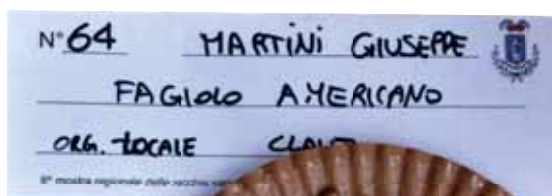 N° 64 MARTINI GIUSEPPE
FAGIOLO AMERICANO
ORG. LOCALE
8ª mostra regionale delle vecchie